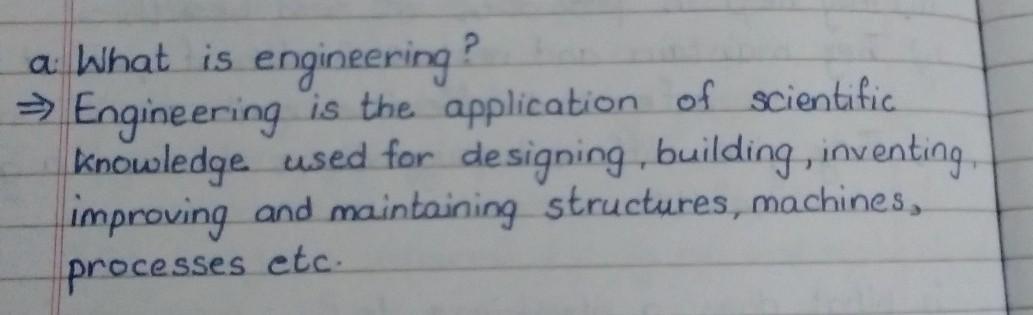 a. What is engineering?
⇒ Engineering is the application of scientific
knowledge used for designing, building, inventing,
improving and maintaining structures, machines,
processes etc.